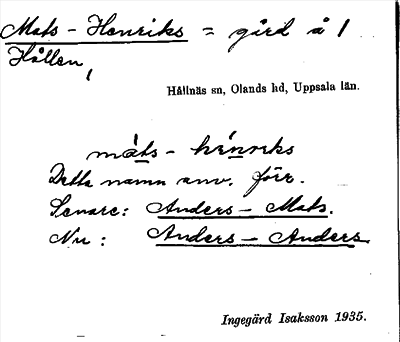 Mats-Henriks = gård å 1
Hållen,
Hållnäs sn, Olands hd, Uppsala län.
màts-hénriks
Detta namn anv. förr.
Senare: Anders-Mats.
Nu: Anders-Anders.
Ingegärd Isaksson 1935.